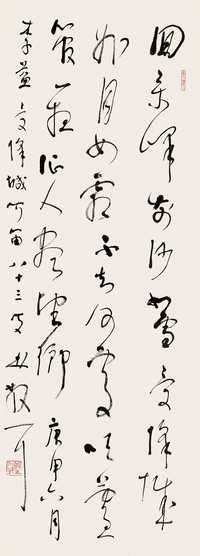 回樂峰前沙似雪受降城
外月如霜不知何處吹蘆
管一夜征人盡望鄉庚申六月
李益受降城聞笛八十三叟林散耳